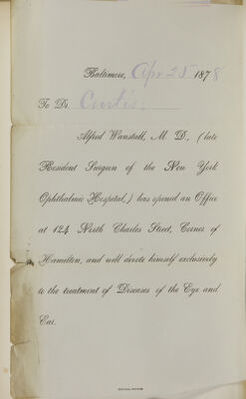 Baltimore, Apr 25 1878
To Dr. Curtis.
Alfred Wanstall, M. D., (late
Resident Surgeon of the New York
Ophthalmic Hospital,) has opened an Office
at 124 North Charles Street, Corner of
Hamilton, and will devote himself exclusively
to the treatment of Diseases of the Eye and
Ear.